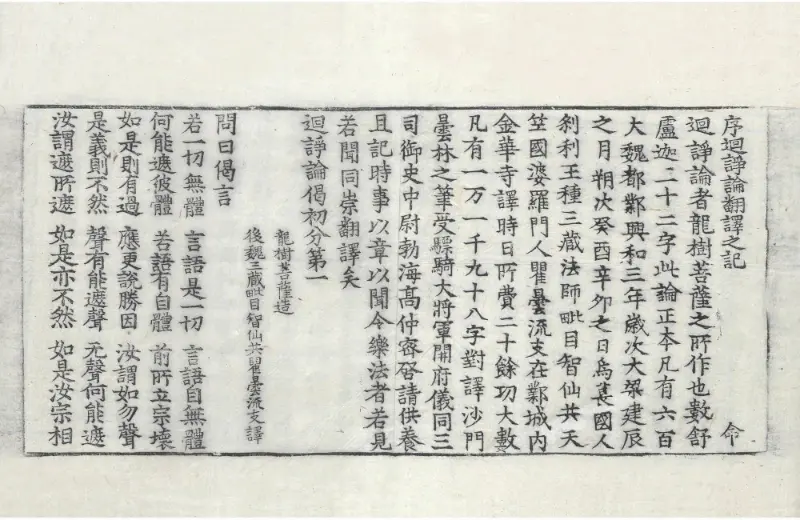 序迴諍論翻譯之記 命
迴諍論者龍樹菩薩之所作也數舒
盧迦二十二字此論正本凡有六百
大魏都鄴興和三年歲次大梁建辰
之月朔次癸酉辛卯之日烏萇國人
剎利王種三藏法師毗目智仙共天
竺國婆羅門人瞿曇流支在鄴城內
金華寺譯時日所費二十餘功大數
凡有一万一千九十八字對譯沙門
曇林之筆受驃騎大將軍開府儀同三
司御史中尉勃海高仲密啓請供養
且記時事以章以聞令樂法者若見
若聞同崇翻譯矣
迴諍論偈初分第一
龍樹菩薩造
後魏三藏毗目智仙共瞿曇流支譯
問曰偈言
若一切無體 言語是一切 言語自無體
何能遮彼體 若語有自體 前所立宗壞
如是則有過 應更說勝因 汝謂如勿聲
是義則不然 聲有能遮聲 无聲何能遮
汝謂遮所遮 如是亦不然 如是汝宗相